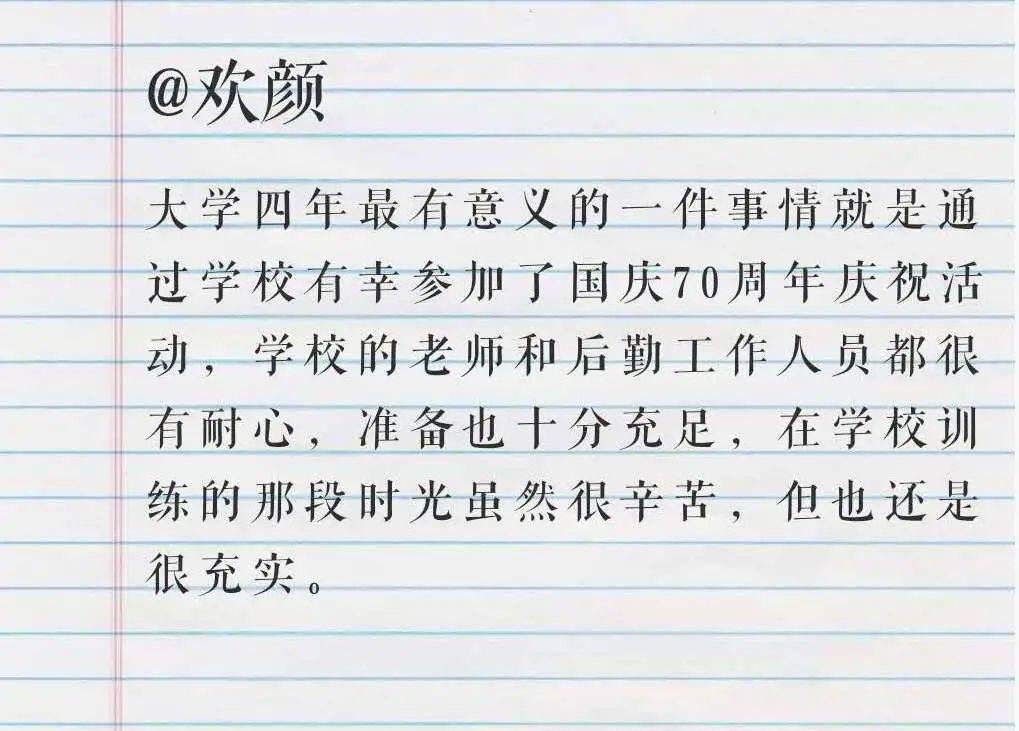 @欢颜
大学四年最有意义的一件事情就是通
过学校有幸参加了国庆70周年庆祝活
动，学校的老师和后勤工作人员都很
有耐心，准备也十分充足，在学校训
练的那段时光虽然很辛苦，但也还是
很充实。